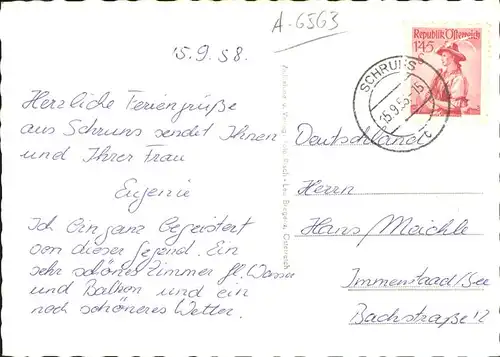 A-6563
15.9.58.
Republik Österreich
1'45
S
SCHRUNS
15.9.58-15
c
Herzliche Feriengrüße
aus Schruns sendet Ihnen
und Ihrer Frau
Eugenie
Ich bin ganz begeistert
von dieser Gegend. Ein
sehr schönes Zimmer fl. Wasser
und Balkon und ein
noch schöneres Wetter.
Deutschland
Herrn
Hans Maichle
Immenstaad/See
Bachstraße 12